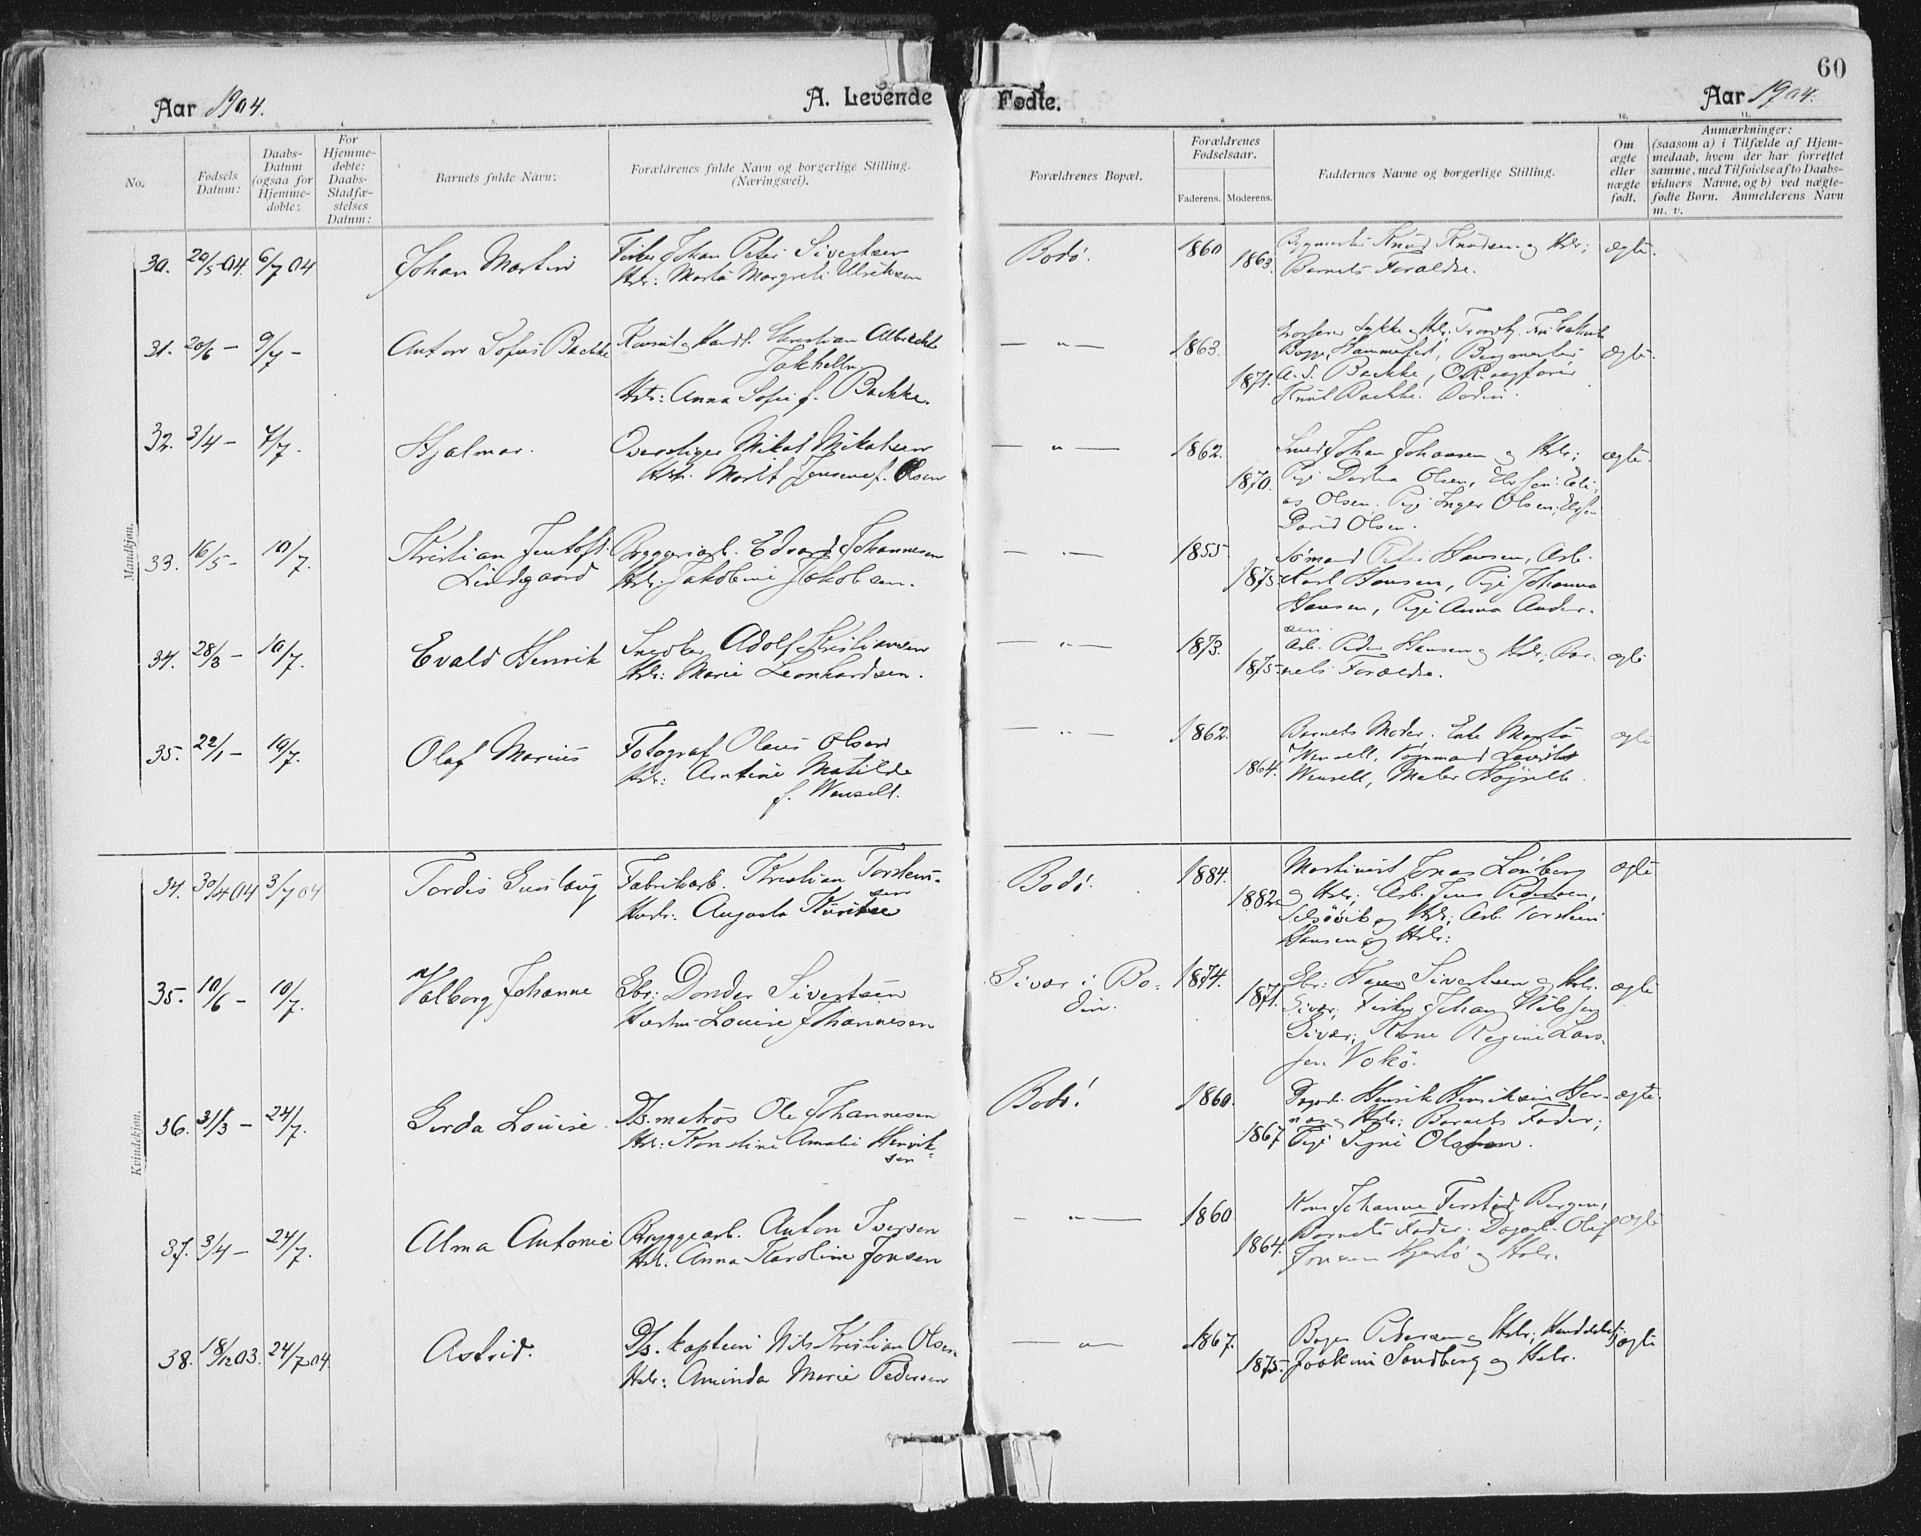 60
Aar 1904.
A. Levende Fødte.
Aar 1904.
1. 2. 3. 4. 5. 6. 7. 8. 9. 10. 11.
No.
Fødsels
Datum:
Daabs-
Datum
(ogsaa for
Hjemme-
døbte:
For
Hjemme-
døbte:
Daabs-
Stadfæ-
stelses
Datum:
Barnets fulde Navn:
Forældrenes fulde Navn og borgerlige Stilling.
(Næringsvei).
Forældrenes Bopæl.
Forældrenes
Fødselsaar.
Faderens. Moderens.
Faddernes Navne og borgerlige Stilling.
Om
ægte
eller
nægte
født.
Anmærkninger:
(saasom a) i Tilfælde af Hjem-
medaab, hvem der har forrettet
samme, med Tilføielse af to Daabs-
vidners Navne, og b) ved nægte-
fødte Børn. Anmelderens Navn
m. v.
Mandkjøn.
30. 20/5 04. 6/7 04 Johan Martin
Fisker Johan Peter Sivertsen
Hstr: Marta Margrete Ulriksen
Bodø. 1860 1863.
Knud Knudsen og Hstr;
Barnets Forældre.
ægte.
31. 20/6 – 9/7 – Anton Sofus Backe
Konsul og Handl. Christian Albrecht
Jakhelln
Hstr: Anna Sofie f. Backke.
— " — 1863. 1871.
Lykke og Hstr: Trondhj.
Hammerfest, Bergmester
A. S. Backke,
Knut Backke. Bodin.
ægte.
32. 3/4 – 7/7. Hjalmar.
Opsetsiger Nikol Nikolsen
Hstr. Marit Jensine f. Olsen
— " — 1862. 1870.
Smed Johan Johansen og Hstr;
Pige Dortea Olsen,
Olsen. Pige Inger Olsen,
David Olsen.
ægte.
33. 16/5 – 10/7. Kristian Jentoft
Lindgaard
Bryggeriarb. Edvard Johannesen
Hstr. Jakobine Jakobsen.
— " — 1855 1875
Sømand Peter Hansen, Arb.
Karl Hansen, Pige Johanna
Hansen, Pige Anna Ander-
sen.
34. 28/3 – 10/7. Evald Henrik
Snedker Adolf Kristiansen
Hstr: Marie Leonhardsen.
— " — 1873. 1875
Arb. Peder Hansen og Hstr; Bar-
nets Forældre.
ægte
35. 22/1 – 10/7. Olaf Marius
Fotograf Olaus Olsen
Hstr: Arntine Matilde
f. Wensell.
— " — 1862. 1864.
Barnets Moder. Enke Marta
Wensell,
Wensell, Maler
ægte
Kvindekjøn.
34. 30/4 04 3/7 04 Tordis Gunlaug
Fabrikarb. Kristian Torstens-
sen
Hustr: Augusta
Bodø. 1884. 1882
Jonas Lønberg
og Hstr; Arb. Jens Pedersen,
og Hstr; Arb. Torstein
Hansen og Hstr:
ægte
35. 10/6 – 10/7. Valborg Johanne
Gbr: Donder Sivertsen
Hustru Louise Johannesen
Givær i Bo-
din. 1874. 1871.
Gbr: Hans Sivertsen og Hstr.
Givær; Fisker Johan Nilssen
Givær; Kone Regine Lars-
sen
ægte
36. 31/3 – 24/7. Gerda Louise.
D/s. matros Ole Johannesen
Hstr: Konstine Amalie Henrik-
sen
Bodø! 1860. 1867
Dagarb. Henrik Henriksen Her-
nes og Hstr; Barnets Fader;
Pige Signe Olsen.
ægte.
37. 3/4 – 24/7. Alma Antonie
Bryggearb. Anton Iversen
Hstr. Anna Karoline Jonsen
— " — 1860 1864.
Kone Johanne Bergen,
Barnets Fader. Dagarb. Oluf
Jonsen Hjertø og Hstr.
ægte
38. 18/12 03. 24/7 04. Astrid.
D/s. kaptein Nils Kristian Olsen
Hstr: Aminda Marie Pedersen
— " — 1867. 1875.
Bager Pedersen og Hstr;
Joakim Sandberg og Hstr.
ægte